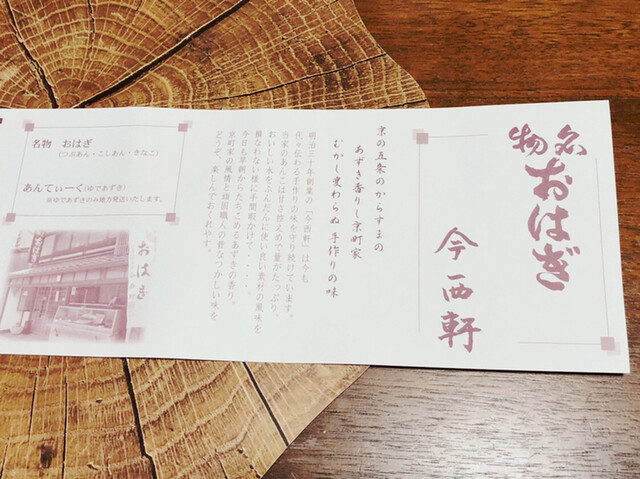 名物
おはぎ
今西軒
京の五条のからすまの
あずき香りし京町家
むかし変わらぬ手作りの味
明治三十年創業の「今西軒」は今も
代々伝わる手作りの味を守り続けています。
当家のあんこは甘さ控えめで量がたっぷり、
おいしい水をふんだんに使い良い素材の風味を
損なわない様に手間暇かけて・・・・
今日も早朝からたちこめるあずきの香り。
京町家の風情と頑固職人の昔なつかしい味を
どうぞ、楽しんでおくれやす。
名物 おはぎ
(つぶあん・こしあん・きなこ)
あんてぃーく(ゆであずき)
※ゆであずきのみ地方発送いたします。
おはぎ